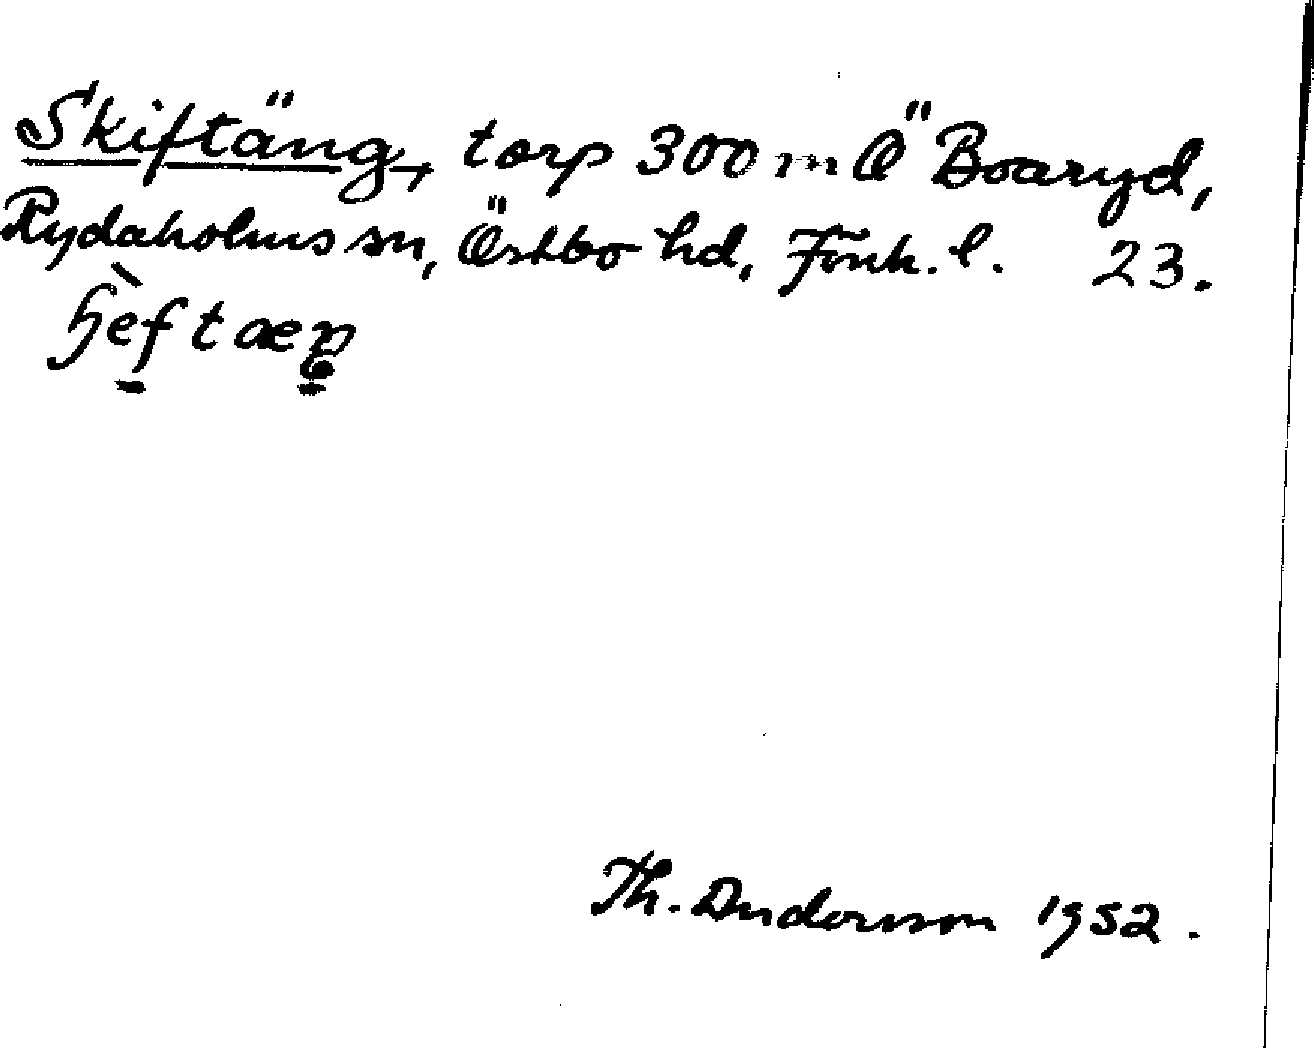 Skiftäng, torp 300 m Ö Boaryd,
Rydaholms sn, Östbo hd, Jönk. l. 23.
Th. Anderson 1952.